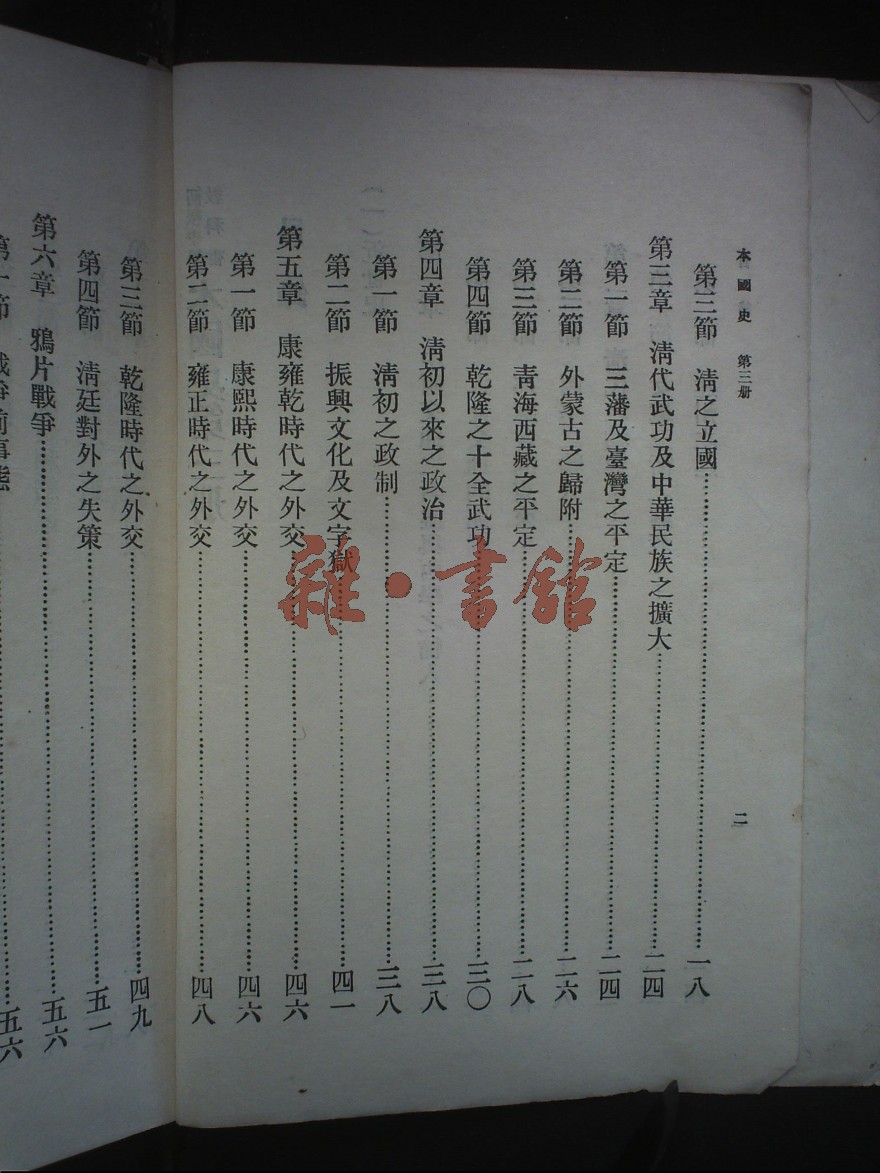 本國史 第三册
二
第三節 淸之立國 一八
第三章 淸代武功及中華民族之擴大 二四
第一節 三藩及臺灣之平定 二四
第二節 外蒙古之歸附 二六
第三節 靑海西藏之平定 二八
第四節 乾隆之十全武功 三〇
第四章 淸初以來之政治 三八
第一節 淸初之政制 三八
第二節 振興文化及文字獄 四一
第五章 康雍乾時代之外交 四六
第一節 康熙時代之外交 四六
第二節 雍正時代之外交 四八
第三節 乾隆時代之外交 四九
第四節 淸廷對外之失策 五一
第六章 鴉片戰爭 五六
第一節 戰爭前事態 五六
雜·書館